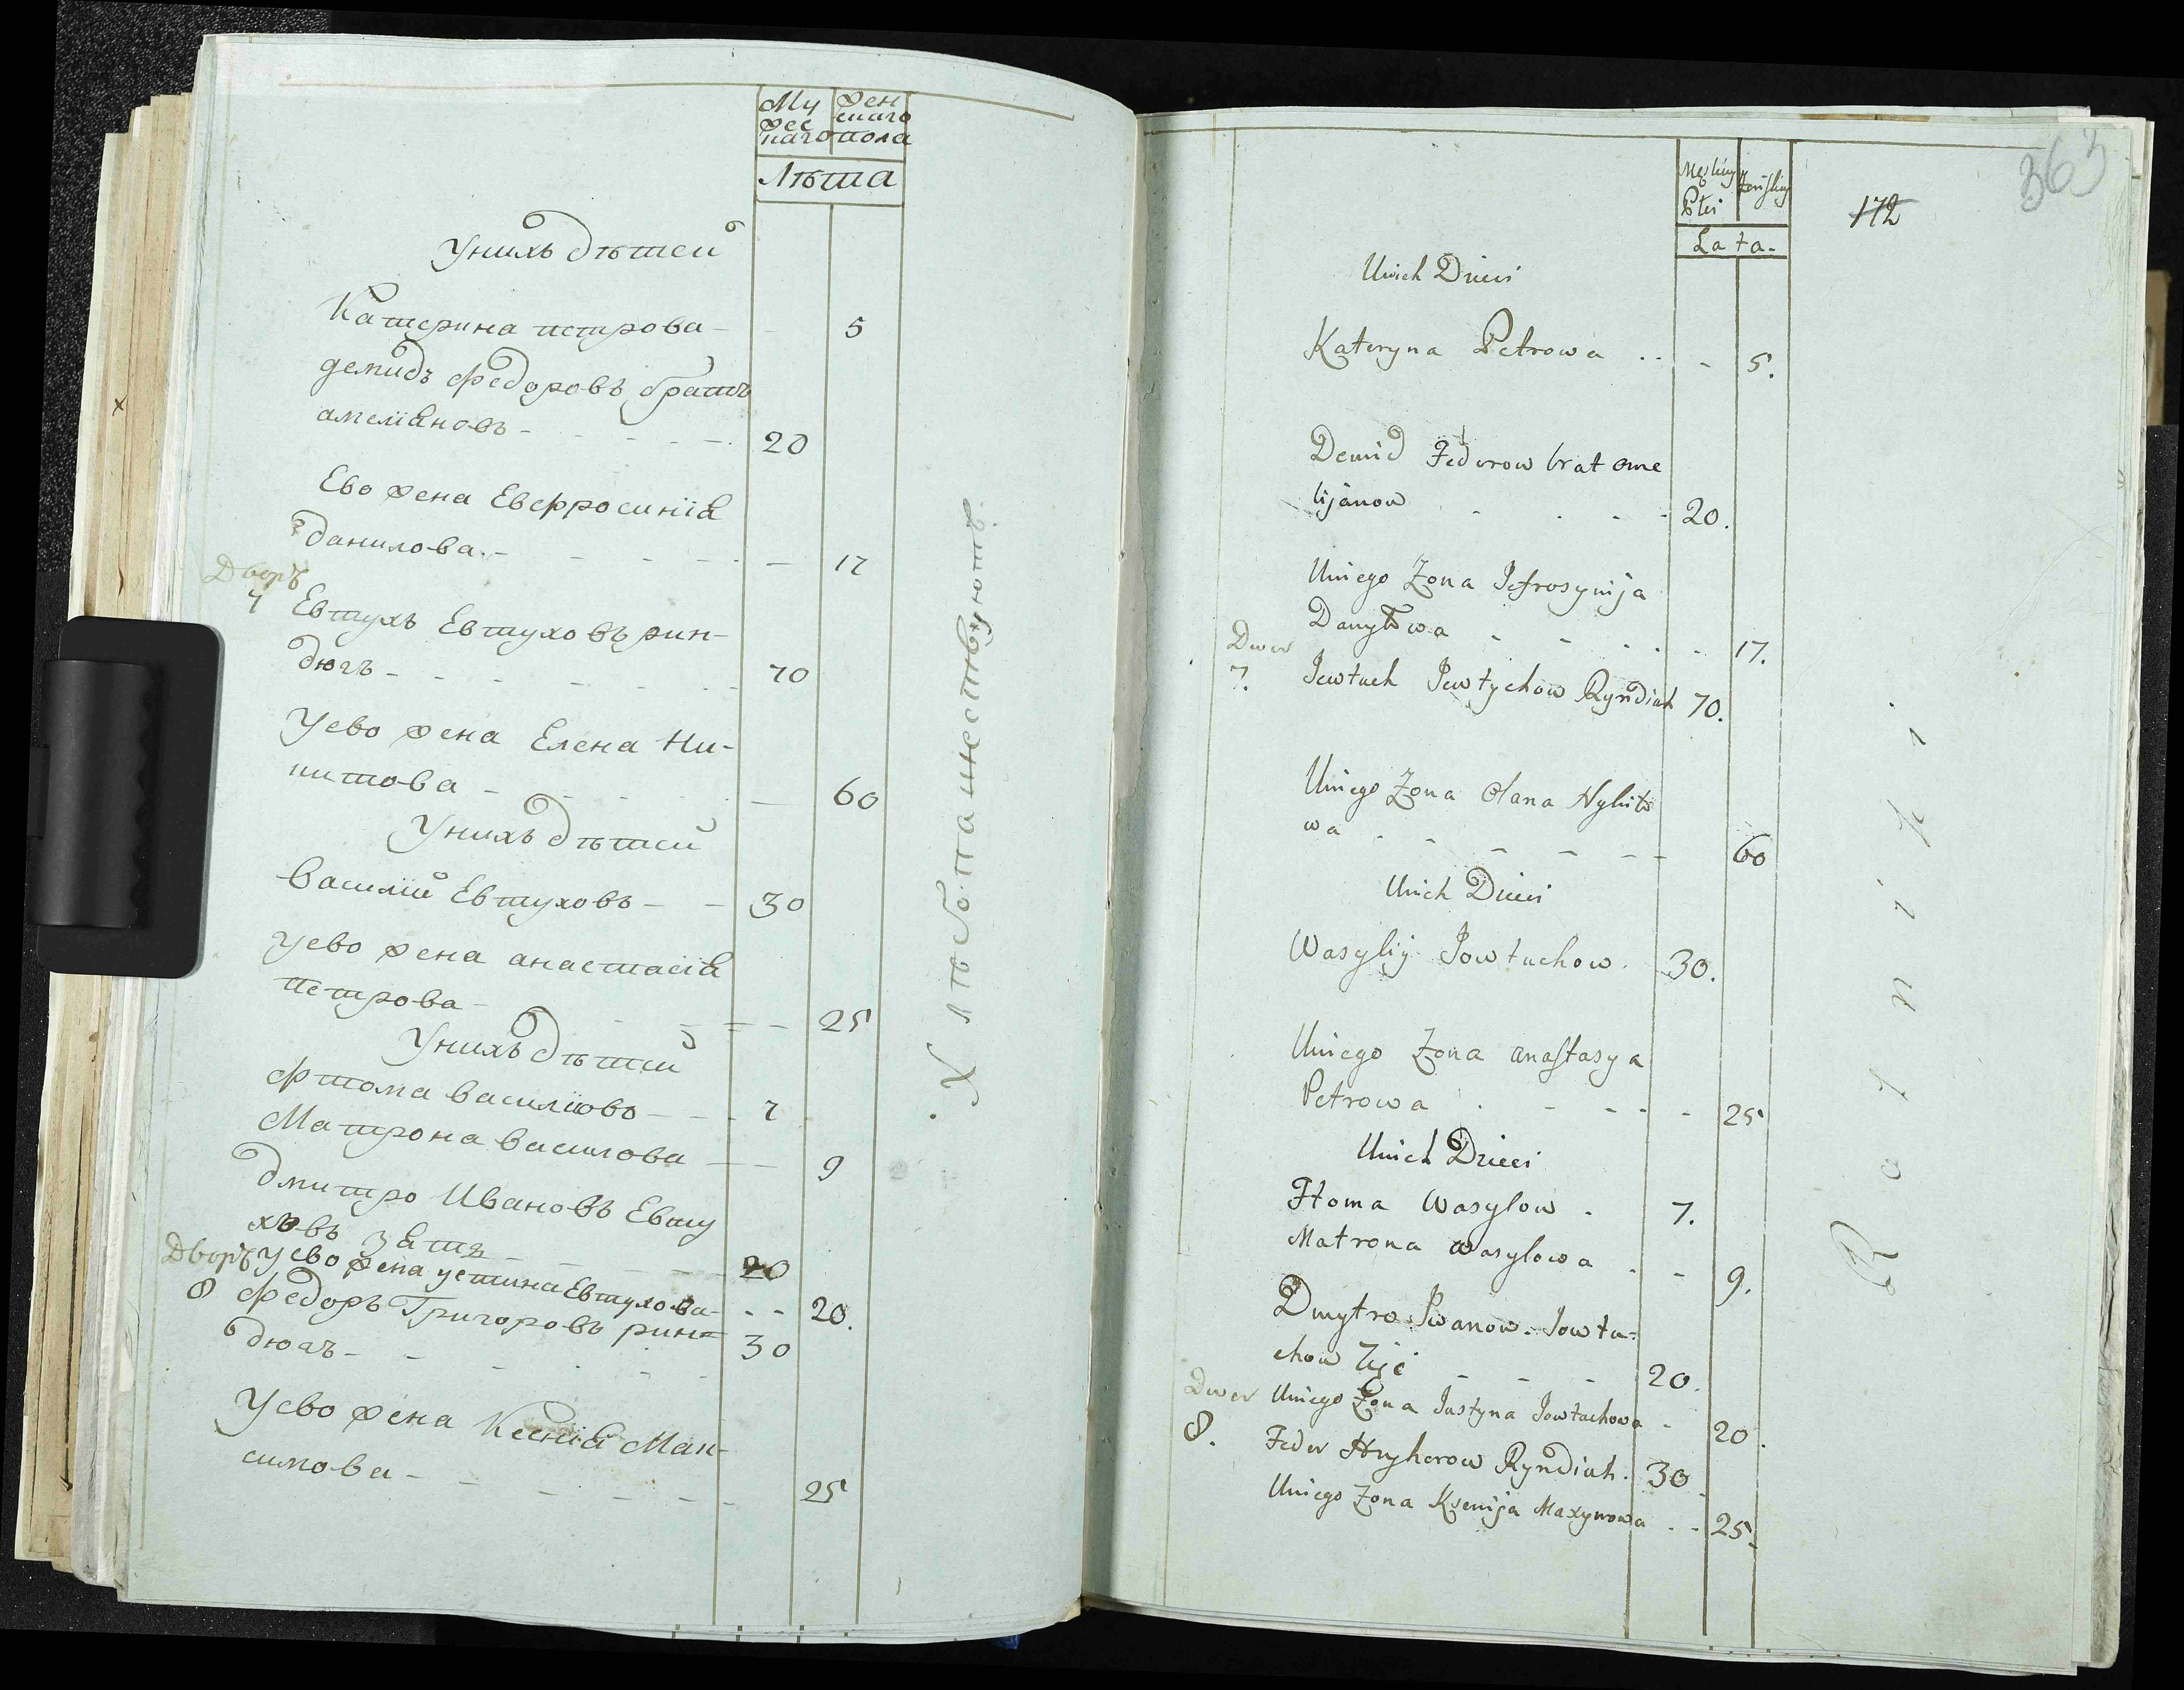 Му
жес
каго
жен
скаго
пола
Лѣта
Унихъ дѣтей
Катерина петрова - - 5
демидъ федоровъ братъ
амелiановъ - - - - 20
Ево жена Евфросинїя
данилова. - - - - 17
Дворъ
7 Евтухъ Евтуховъ рин-
дюгъ - - - - 70
Уево жена Елена Ни-
китова - - - - 60
Унихъ дѣтей
Василий Евтуховъ - - 30
уево жена анастасїя
петрова - - - - 25
Унихъ дѣтей
фтома василiово - - 7
Матрона василова - - 9
дмитро Ивановъ Евту
ховъ зять - - - 20
Дворъ уево жена устина Евтухова - - 20.
8 федоръ Григоровъ рин= 30
дюгъ - - - -
Уево жена Ксенiя Мак-
симова - - - - 25
Хлѣбопашествуютъ.
363
172
Męskiey
Płci
żeńskiey
Lata.
Unich Dzieci
Kateryna Petrowa .. - 5.
Demid Fedorow brat ome
lijanow - - - - 20.
Uniego Żona Jefrosynija
Danyłowa - - - - 17.
Dwor
7. Jewtuch Jewtychow Ryndiuh 70.
Uniego Żona Olana Nykito
wa - - - - 60
Unich Dzieci
Wasylij Jowtuchow. 30.
Uniego Żona anastasya
Petrowa . - - - - 25
Unich Dzieci
Ftoma Wasylow . 7.
Matrona Wasylowa . - 9.
Dmytro Iwanow. Jowtu=
chow Zięć - - - 20.
Dwor Uniego Żona Justyna Jowtuchowa - 20.
8. Fedor Hryhorow Ryndiuh. 30.
Uniego Żona Ksenija Maxymowa . - 25.
Rolniki.